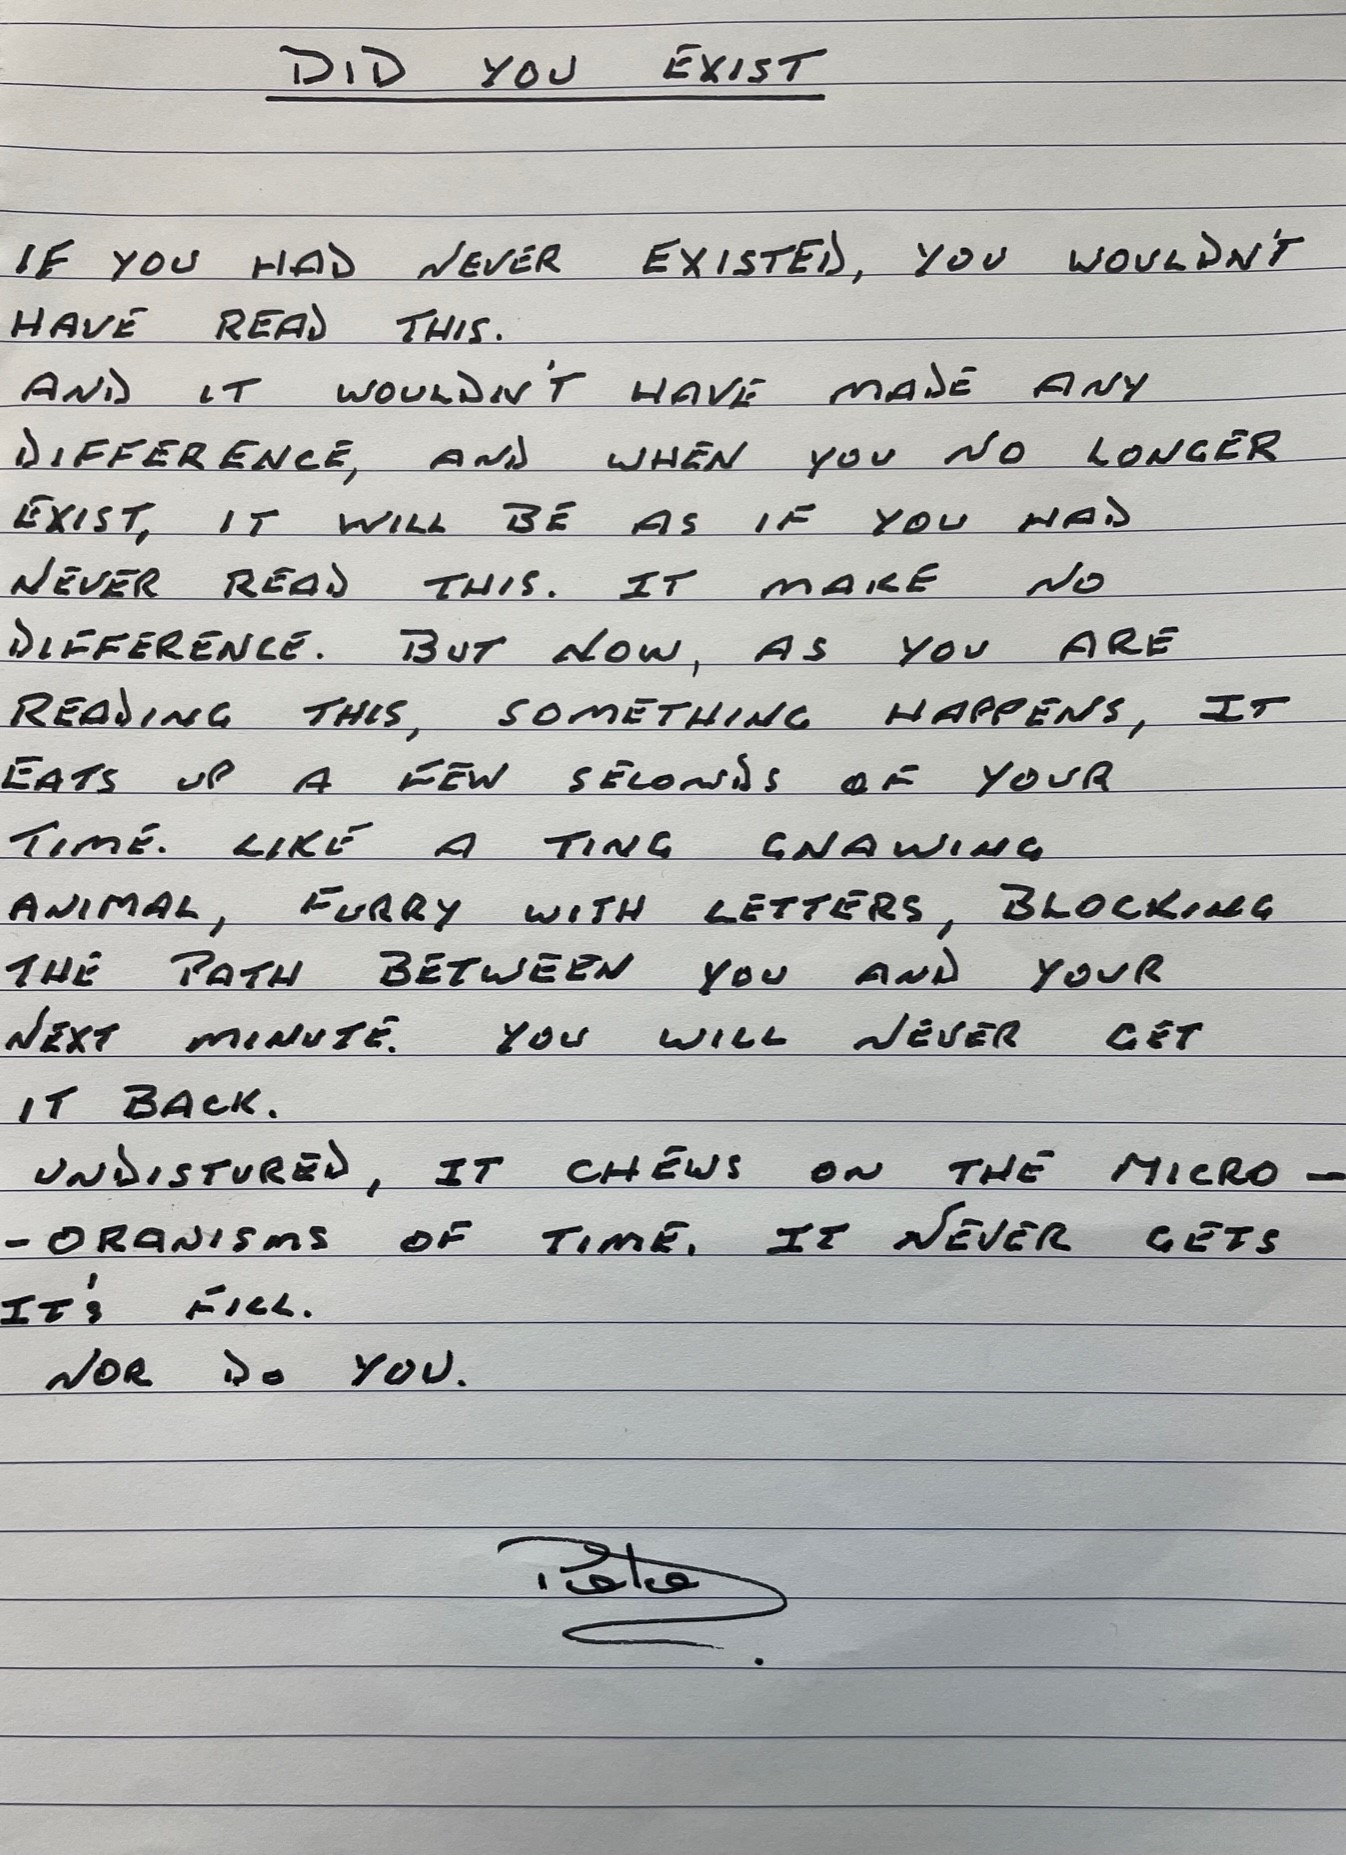 DID YOU EXIST
IF YOU HAD NEVER EXISTED, YOU WOULDN'T
HAVE READ THIS.
AND IT WOULDN'T HAVE MADE ANY
DIFFERENCE, AND WHEN YOU NO LONGER
EXIST, IT WILL BE AS IF YOU HAD
NEVER READ THIS. IT MAKE NO
DIFFERENCE. BUT NOW, AS YOU ARE
READING THIS, SOMETHING HAPPENS, IT
EATS UP A FEW SECONDS OF YOUR
TIME. LIKE A TING GNAWING
ANIMAL, FURRY WITH LETTERS, BLOCKING
THE PATH BETWEEN YOU AND YOUR
NEXT MINUTE. YOU WILL NEVER GET
IT BACK.
UNDISTURED, IT CHEWS ON THE MICRO-
-ORANISMS OF TIME. IT NEVER GETS
IT'S FILL.
NOR DO YOU.
Pete